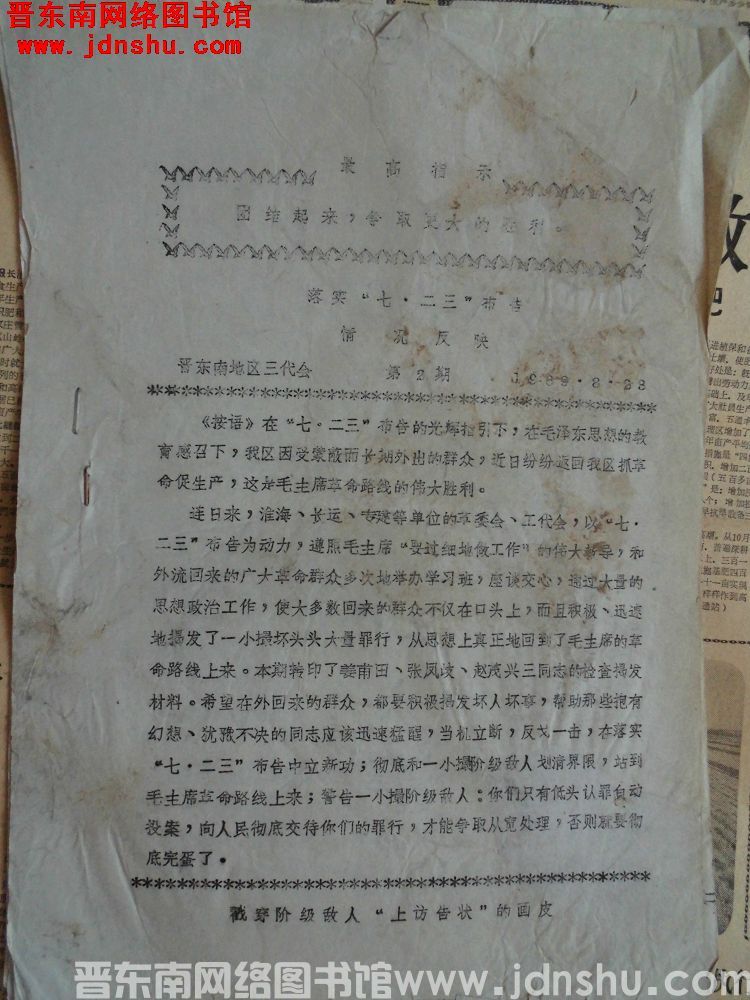 晋东南网络图书馆
www.jdnshu.com
最高指示
团结起来，争取更大的胜利。
落实“七·二三”布告
情况反映
晋东南地区三代会 第2期 1969·8·28
《按语》在“七·二三”布告的光辉指引下，在毛泽东思想的教
育感召下，我区因受蒙蔽而长期外出的群众，近日纷纷返回我区抓革
命促生产，这是毛主席革命路线的伟大胜利。
连日来，淮海、长运、专建等单位的革委会、工代会，以“七·
二三”布告为动力，遵照毛主席“要过细地做工作”的伟大教导，和
外流回来的广大革命群众多次地举办学习班，座谈交心，通过大量的
思想政治工作，使大多数回来的群众不仅在口头上，而且积极、迅速
地揭发了一小撮坏头头大量罪行，从思想上真正地回到了毛主席的革
命路线上来。本期转印了姜甫田、张凤岐、赵茂兴三同志的检查揭发
材料。希望在外回来的群众，都要积极揭发坏人坏事，帮助那些抱有
幻想、犹豫不决的同志应该迅速猛醒，当机立断，反戈一击，在落实
“七·二三”布告中立新功；彻底和一小撮阶级敌人划清界限，站到
毛主席革命路线上来；警告一小撮阶级敌人：你们只有低头认罪自动
投案，向人民彻底交待你们的罪行，才能争取从宽处理，否则就要彻
底完蛋了。
戳穿阶级敌人“上访告状”的画皮
晋东南网络图书馆www.jdnshu.com